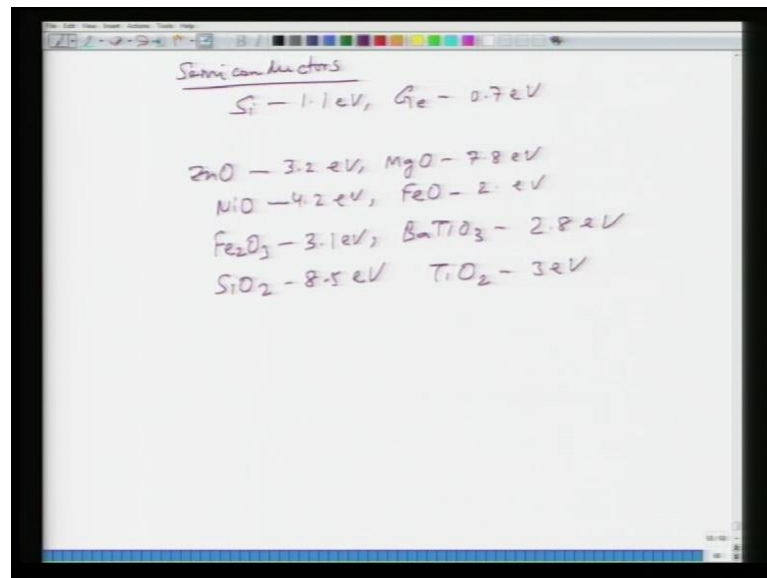 File Edit View Insert Actions Tools Help
Semiconductors
Si – 1.1 eV, Ge – 0.7 eV
ZnO – 3.2 eV, MgO – 7.8 eV
NiO – 4.2 eV, FeO – 2. eV
Fe2O3 – 3.1 eV, BaTiO3 – 2.8 eV
SiO2 – 8.5 eV TiO2 – 3 eV